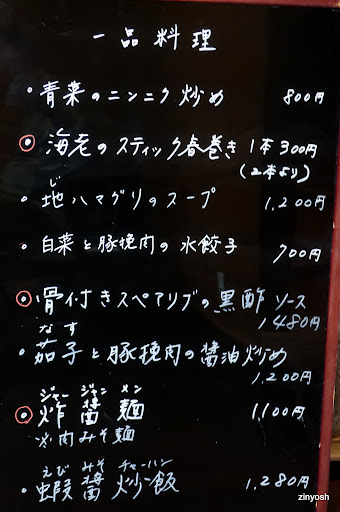 一品料理
・青菜のニンニク炒め 800円
海老のスティック春巻き 1本300円
(2本より)
じ
・地ハマグリのスープ 1,200円
・白菜と豚挽肉の水餃子 700円
骨付きスペアリブの黒酢ソース
1480円
なす
・茄子と豚挽肉の醤油炒め
1,200円
ジャー ジャン メン
炸醤麺 1,100円
※肉みそ麺
えび みそ チャーハン
・蝦醤炒飯 1,280円
zinyosh